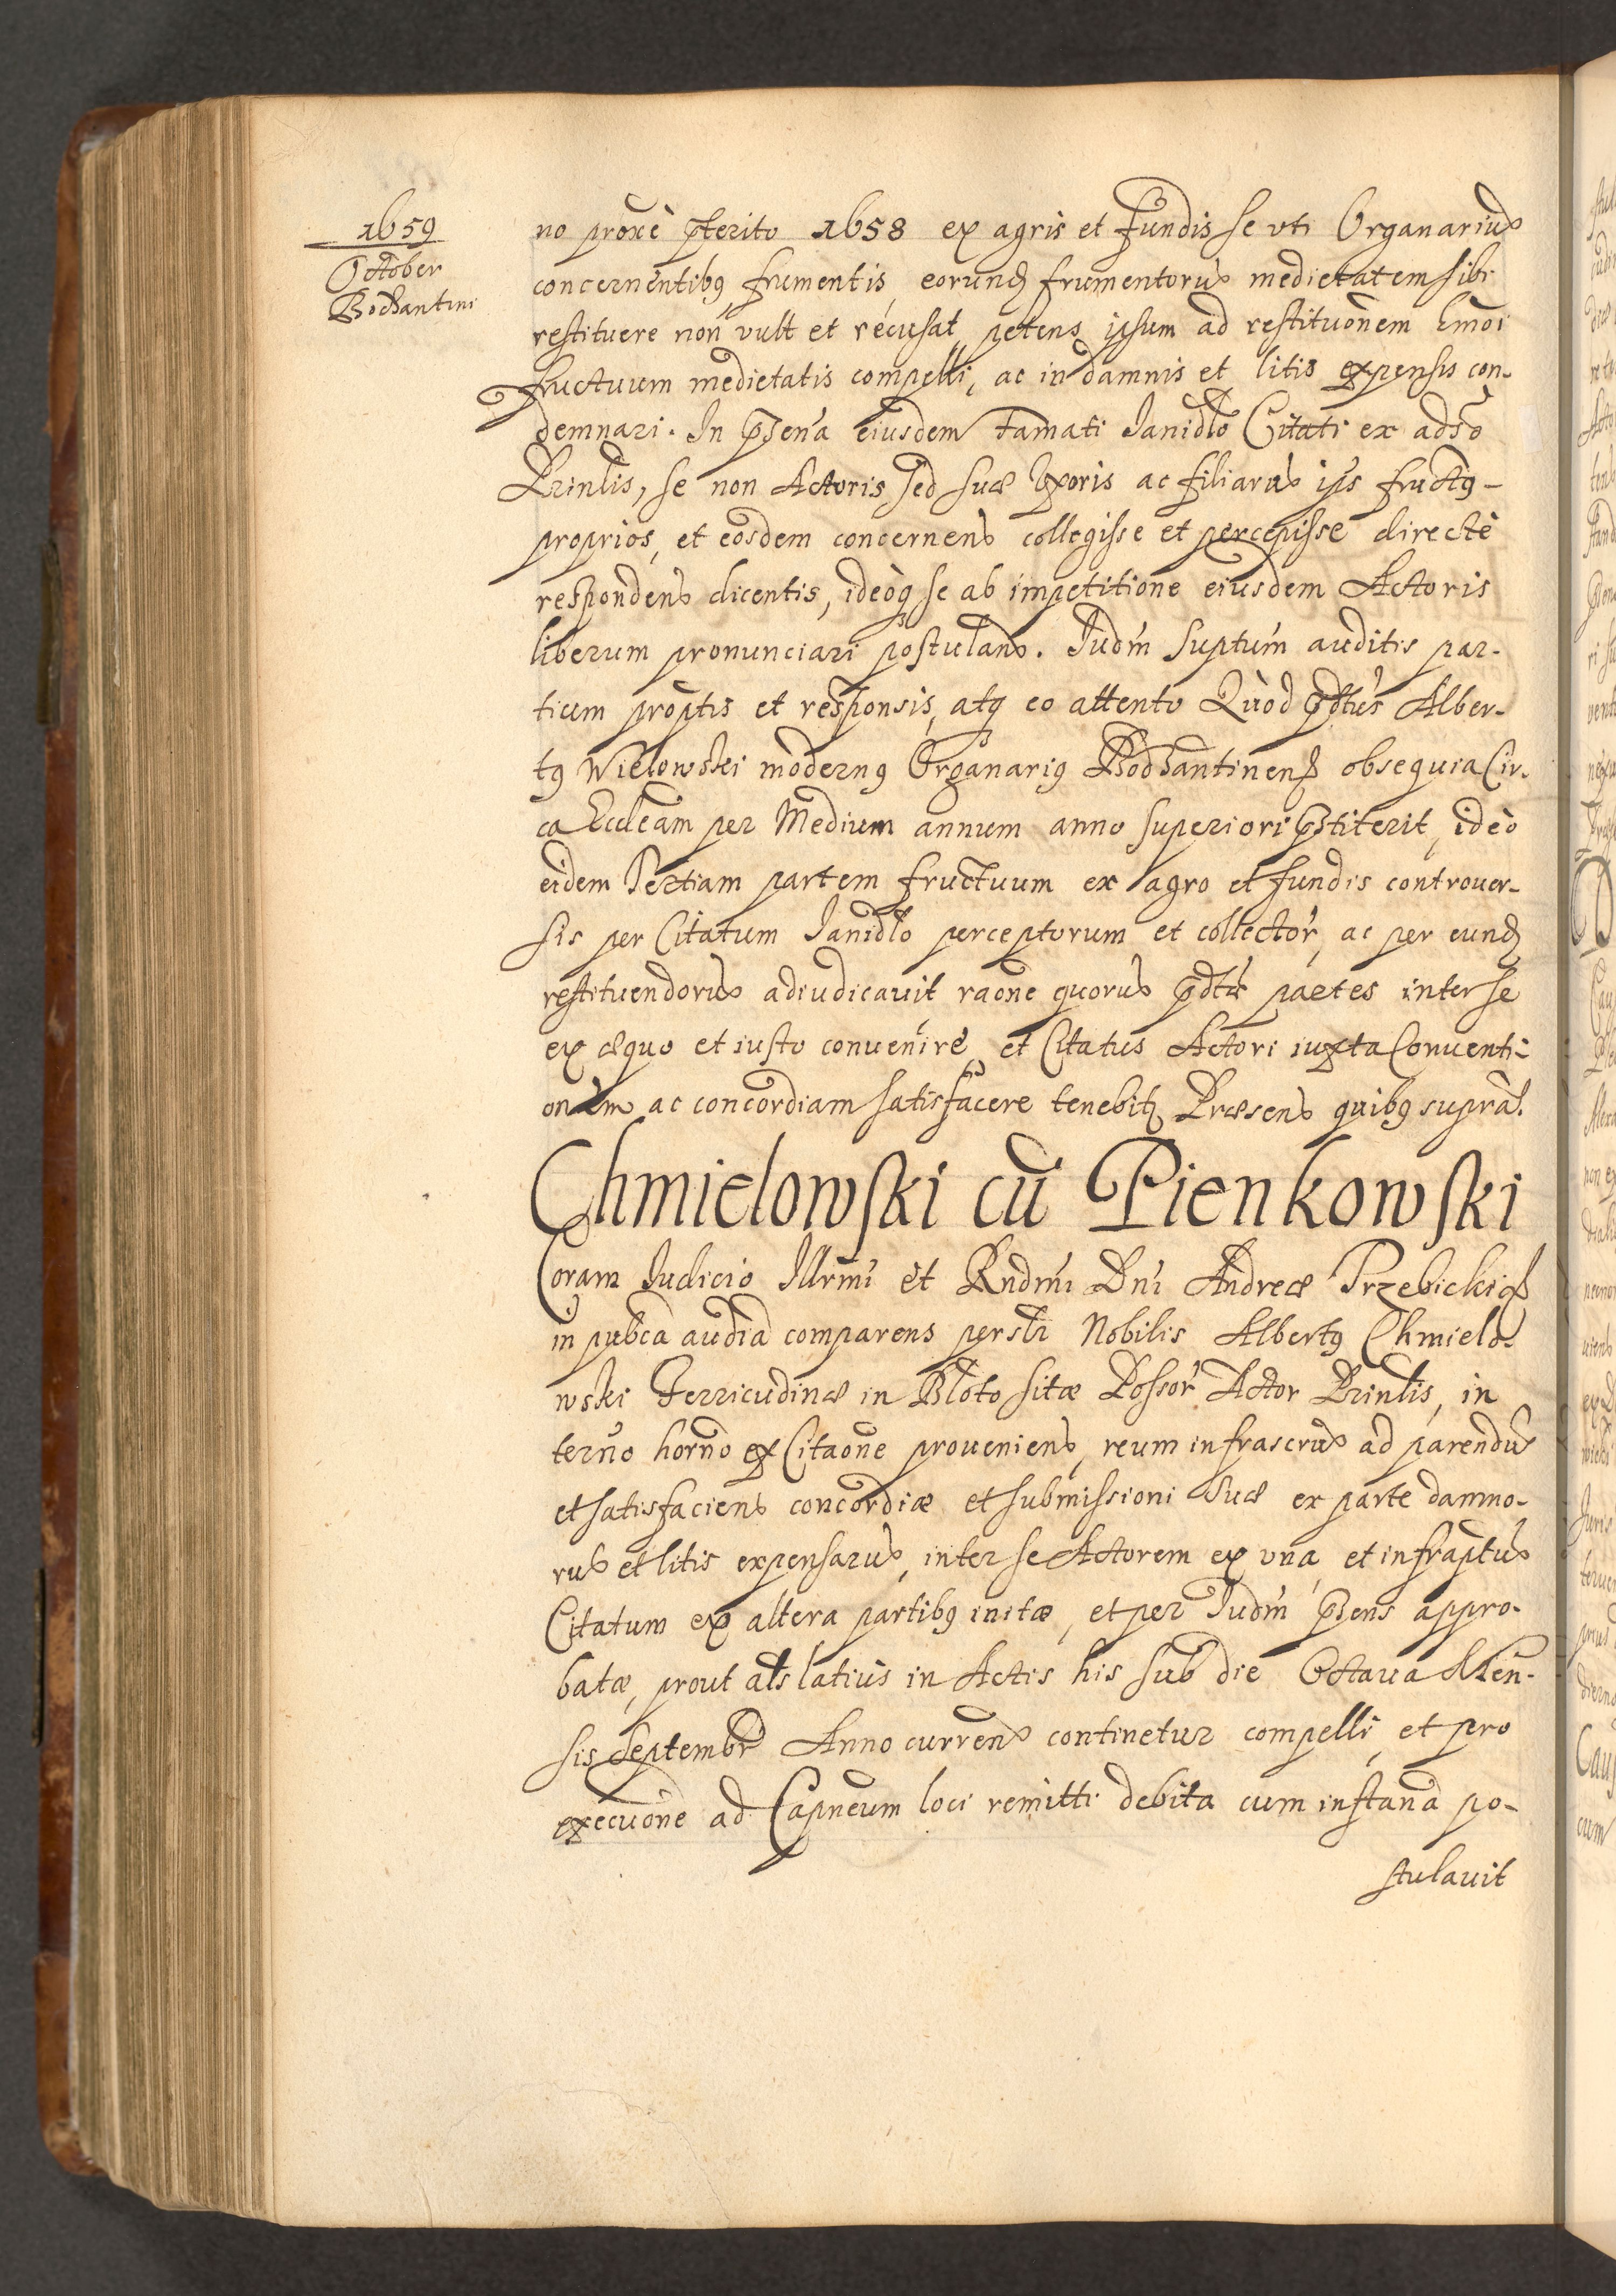 1659
October
Bodzantini
no proxè pterito 1658 ex agris et fundis se uti Organarium
concernentibq frumentis, eorund frumentorum medietatem sibi
restituere non vult et recusat, petens ipsum ad restituonem hmoi
fructuum medietatis compelli, ac in damnis et litis expensis con-
demnari. In pntia eiusdem famati Janidło Citati ex adso
Prinlis, se non Actoris sed suæ Uxoris ac filiarum ips fructq
proprios, et eosdem concernens collegisse et percepisse directè
respondens dicentis, ideoq se ab impetitione eiusdem Actoris
liberum pronunciari postulans. Judm suptum auditis par-
tium proptis et responsis, atq eo attento Quòd pdtus Alber-
tq Wielowski modernq Organariq Bodzantinen obsequia Cir-
ca Eccleam per Medium annum anno superiori pstiterit, ideò
eidem Tertiam partem fructuum ex agro et fundis controver-
sis per Citatum Janidło perceptorum et collector, ac per eund
restituendorum adiudicavit raone quorum pdtæ partes inter se
ex æquo et iusto convenire, et Citatus Actori iuxta Conventi-
onem ac concordiam satisfacere tenebit. Præsens quibq suprà.
Chmielowski cu Pienkowski
Coram Judicio Illrmi et Rndmi Dni Andreæ Trzebicki
in pubca audia comparens persłr Nobilis Albertq Chmielo-
wski Ferricudinæ in Błoto sitæ Possor Actor Prinlis, in
terno horno ex Citaone proveniens, reum infrascrum ad parendum
et satisfaciens concordiæ et submissioni suæ ex parte damno-
rum et litis expensarum, inter se Actorem ex una, et infraptum
Citatum ex altera partibq initæ, et per Judm pns appro-
batæ, prout als latius in Actis his sub die Octava Men-
sis Septembr Anno curren continetur compelli, et pro
execuone ad Capneum loci remitti debita cum instana po-
stulavit